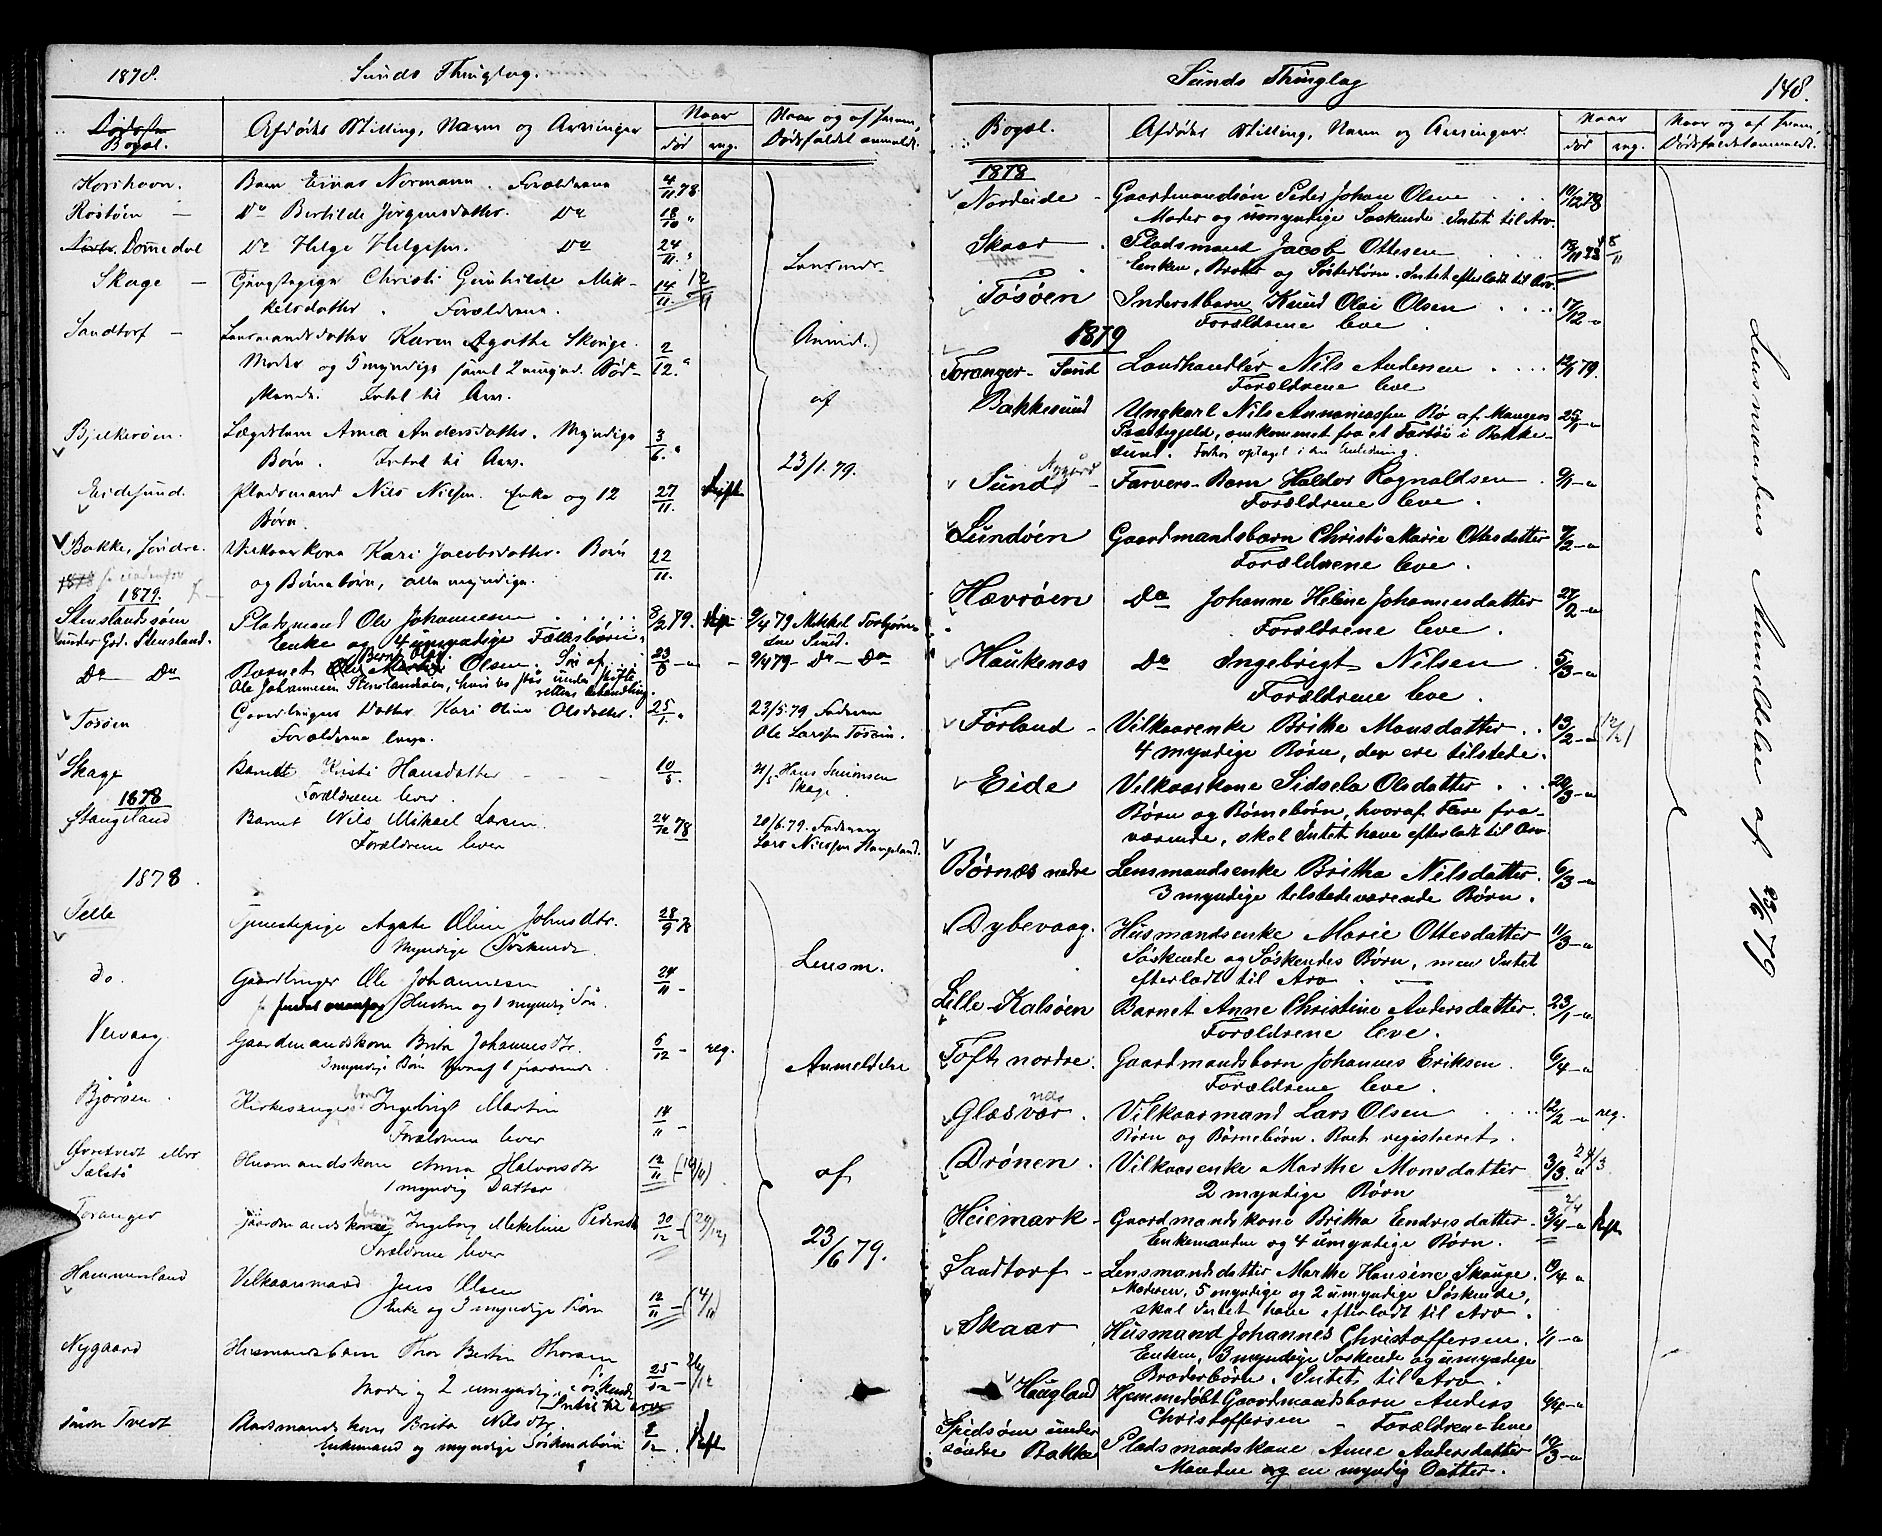 1878.
Sunds Thinglag.
Bopæl.
Afdødes Stilling, Navn og Arvinger
Naar
død
reg.
Naar og af hvem
Dødsfaldet anmeldt.
Korshavn.
Barn Einar Normann. Forældrene
4/11 78
Rostøen —
Do Bertilde Jørgensdatter. Do
18/10 "
Dommedal
Do Helge Helgesen. Do
24/11 "
Skage —
Tjenestepige Christi Gunhilde Mik-
kelsdatter. Forældrene.
14/11. 12/11
Sandtorf —
Lensmandsdatter Karen Agathe Skouge.
Moder og 5 myndige samt 2 umynd. Sød-
skende. Intet til Arv.
2/12. "
Bjelkerøen.
Lægdslem Anna Andersdatter. Myndige
Børn. Intet til Arv.
3/6. "
Eidesund.
Pladsmand Nils Nilsen. Enke og 12
Børn.
27/11. Skift
Bakke, søndre.
Vilkaarkone Kari Jacobsdatter. Børn
og Børnebørn, alle myndige.
22/11.
Lensmds
Anmd.
af
23/1. 79.
1879.
Stenslandsøen
under Grd. Stensland.
Pladsmand Ole Johannesen
Enke og 4 umyndige Fællesbørn.
8/2 79. Skift
9/4 79 Mikkel Torbjørn-
sen Sund.
Do — Do
Barnet Bernt Olai Olsen. Søn af
Ole Johannesen Stenslandsøen, hvis bo staar under skifte-
rettens behandling.
9/4 79 — Do — Do
Tosøen
Gaardbrugers Datter Kari Oline Olsdatter.
Forældrene lever.
25/1. "
23/5. 79 Faderen
Ole Larssen Tosøen.
Skage
Barnet Kristi Hansdatter
Forældrene lever.
10/5.
Hans Simonsen
Skage.
1878
Stangeland
Barnet Nils Mikael Larsen.
Forældrene lever
24/12 78
20/6. 79. Faderen
Lars Nilssen Stangeland.
1878.
Telle
Tjenestepige Agate Oline Johnsdtr.
Myndige Søskende
28/9 78
do.
Gaardbruger Ole Johannesen
Hustru og 1 myndig Søn
24/11 —
Vervaag.
Gaardmandskone Brita Johannesdtr.
3 myndige Børn hvoraf 1 fraværende.
5/12 — reg.
Bjørøen.
Kirkesanger Ingebrigt Martin
Forældrene lever
14/11 —
Tælstø
Husmandskone Anna Halvorsdtr
1 myndig Datter
12/11 — (19/11)
Toranger
Gaardmandskone Ingeborg Mekeline Pedersdtr
Forældrene lever
30/12 — (29/12)
Hammersland
Vilkaarsmand Jens Olsen
Enke og 3 myndige Børn
12/11 — (4/11)
Nygaard
Husmandsbarn Thor Bertin Thorsen
Moder og 2 umyndige Søskende
Intet til arv
25/12 — 26/12
Tvedt
Pladsmandskone Brita Nilsdtr.
Enkemand og myndige Søskendebørn
2/12. Skift
Lensm.
Anmeldelse
af
23/6 79.
Sunds Thinglag
148.
Bopæl.
Afdødes Stilling, Navn og Arvinger.
Naar
død
reg.
Naar og af hvem,
Dødsfaldet anmeldt.
1878
Nordeide -
Gaardmandssøn Peder Johan Olsen
Moder og umyndige Søskende. Intet til Arv.
10/12 78
Skaar —
Pladsmand Jacob Ottesen
Enken, Broder og Søsterbørn. Intet efterladt til Arv.
Tosøen
Inderstbarn Knud Olai Olsen
Forældrene leve
17/12 -"
1879
Toranger - Sund
Landhandler Nils Andersen
Forældrene leve
12/1 79.
Bakkesund
Ungkarl Nils Annaniassen Bø af Manger
Præstegjeld, omkommet fra et Fartøi i Bakke-
sund. Forhør optaget i den Anledning.
25/1 -"
Sund, Nygaard -
Farvers-Barn Haldor Ragnaldsen
Forældrene leve.
9/1 -"
Lundøen
Gaardmandsbarn Christi Marie Ottesdatter
Forældrene leve.
7/2 -"
Hævrøen
Do Johanne Heline Johannesdatter
Forældrene leve.
27/2 -"
Haukenæs
Do Ingebrigt Nilsen
Forældrene leve.
5/3 -"
Førland -
Vilkaarenke Brithe Monsdatter
4 myndige Børn, der ere tilstede.
13/2 -" (12/2)
Eide
Vilkaarkone Sidsela Olsdatter
Børn og Børnebørn, hvoraf Flere fra-
værende, skal Intet have efterladt til Arv.
20/3 -"
Børnæs nedre
Lensmandsenke Britha Nilsdatter.
3 myndige tilstedeværende Børn.
6/3 -"
Dybevaag.
Husmandsenke Marie Ottesdatter
Søskende og Søskendes Børn, men Intet
efterladt til Arv.
11/3 -"
Lille-Kalsøen
Barnet Anne Christine Andersdatter.
Forældrene leve.
23/1 -"
Toft nordre.
Gaardmandsbarn Johannes Eriksen
Forældrene leve.
6/4 -"
Glæsvær.
Vilkaarmand Lars Olsen
Børn og Børnebørn. Boet registreret.
12/2 -" reg.
Drønen.
Vilkaarenke Marthe Monsdatter
2 myndige Børn
3/3. "
Heiemark -
Gaardmandskone Britha Endresdatter
Enkemanden og 4 umyndige Børn.
3/4 -" Skift
Sandtorf -
Lensmandsdatter Marthe Hansine Skauge.
Moderen, 5 myndige og 2 umyndige Søskende,
skal Intet have efterladt til Arv.
Skaar
Husmand Johannes Christoffersen.
Enken, 3 myndige Søskende og umyndige
Broderbørn. Intet til Arv.
Haugland
Hjemmedøbt Gaardmandsbarn Anders
Christoffersen - Forældrene leve
Spidsøen under
søndre Bakke
Pladsmandskone Anne Andersdatter
Manden og en myndig Datter.
10/3 -"
Lensmandens Anmeldelse af 23/6 79